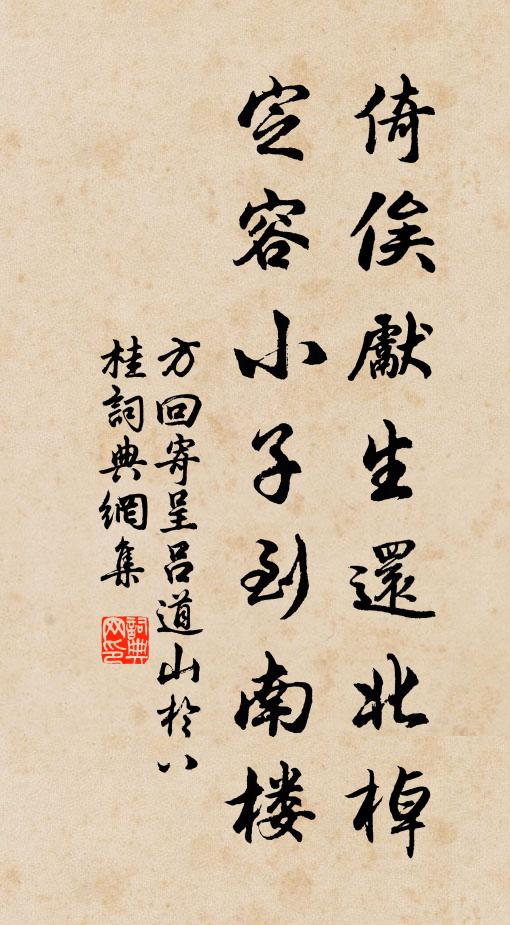 倚俟獻生還北棹
定容小子到南楼
方回寄呈吕道山於八
桂詞典網集
詞典
网印